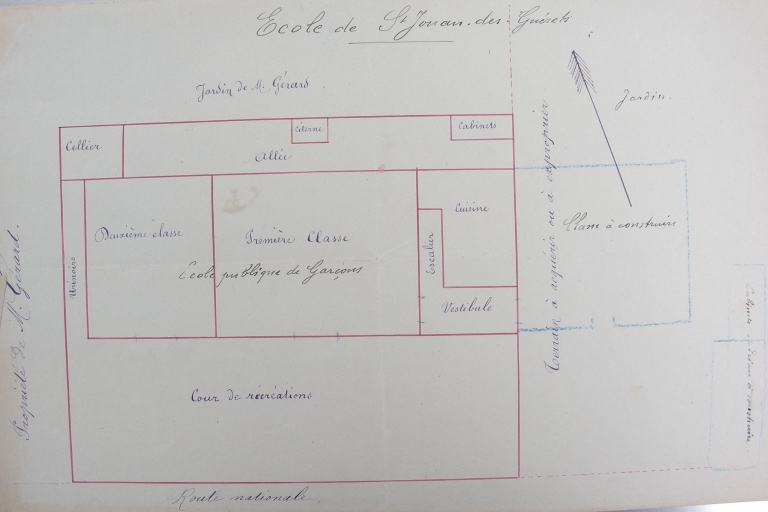 Ecole de St Jouan-des-Guérets
Jardin de M. Gérard
Jardin
Cellier
Citerne
Cabinets
Allée
Cuisine
Deuxième classe
Première Classe
Escalier
Classe à construire
Ecole publique de Garçons
Urinoire
Vestibule
Terrain à acquérir ou à exproprier
Propriété de M. Gérard
Cour de récréations
Cabinets à construire
Route nationale